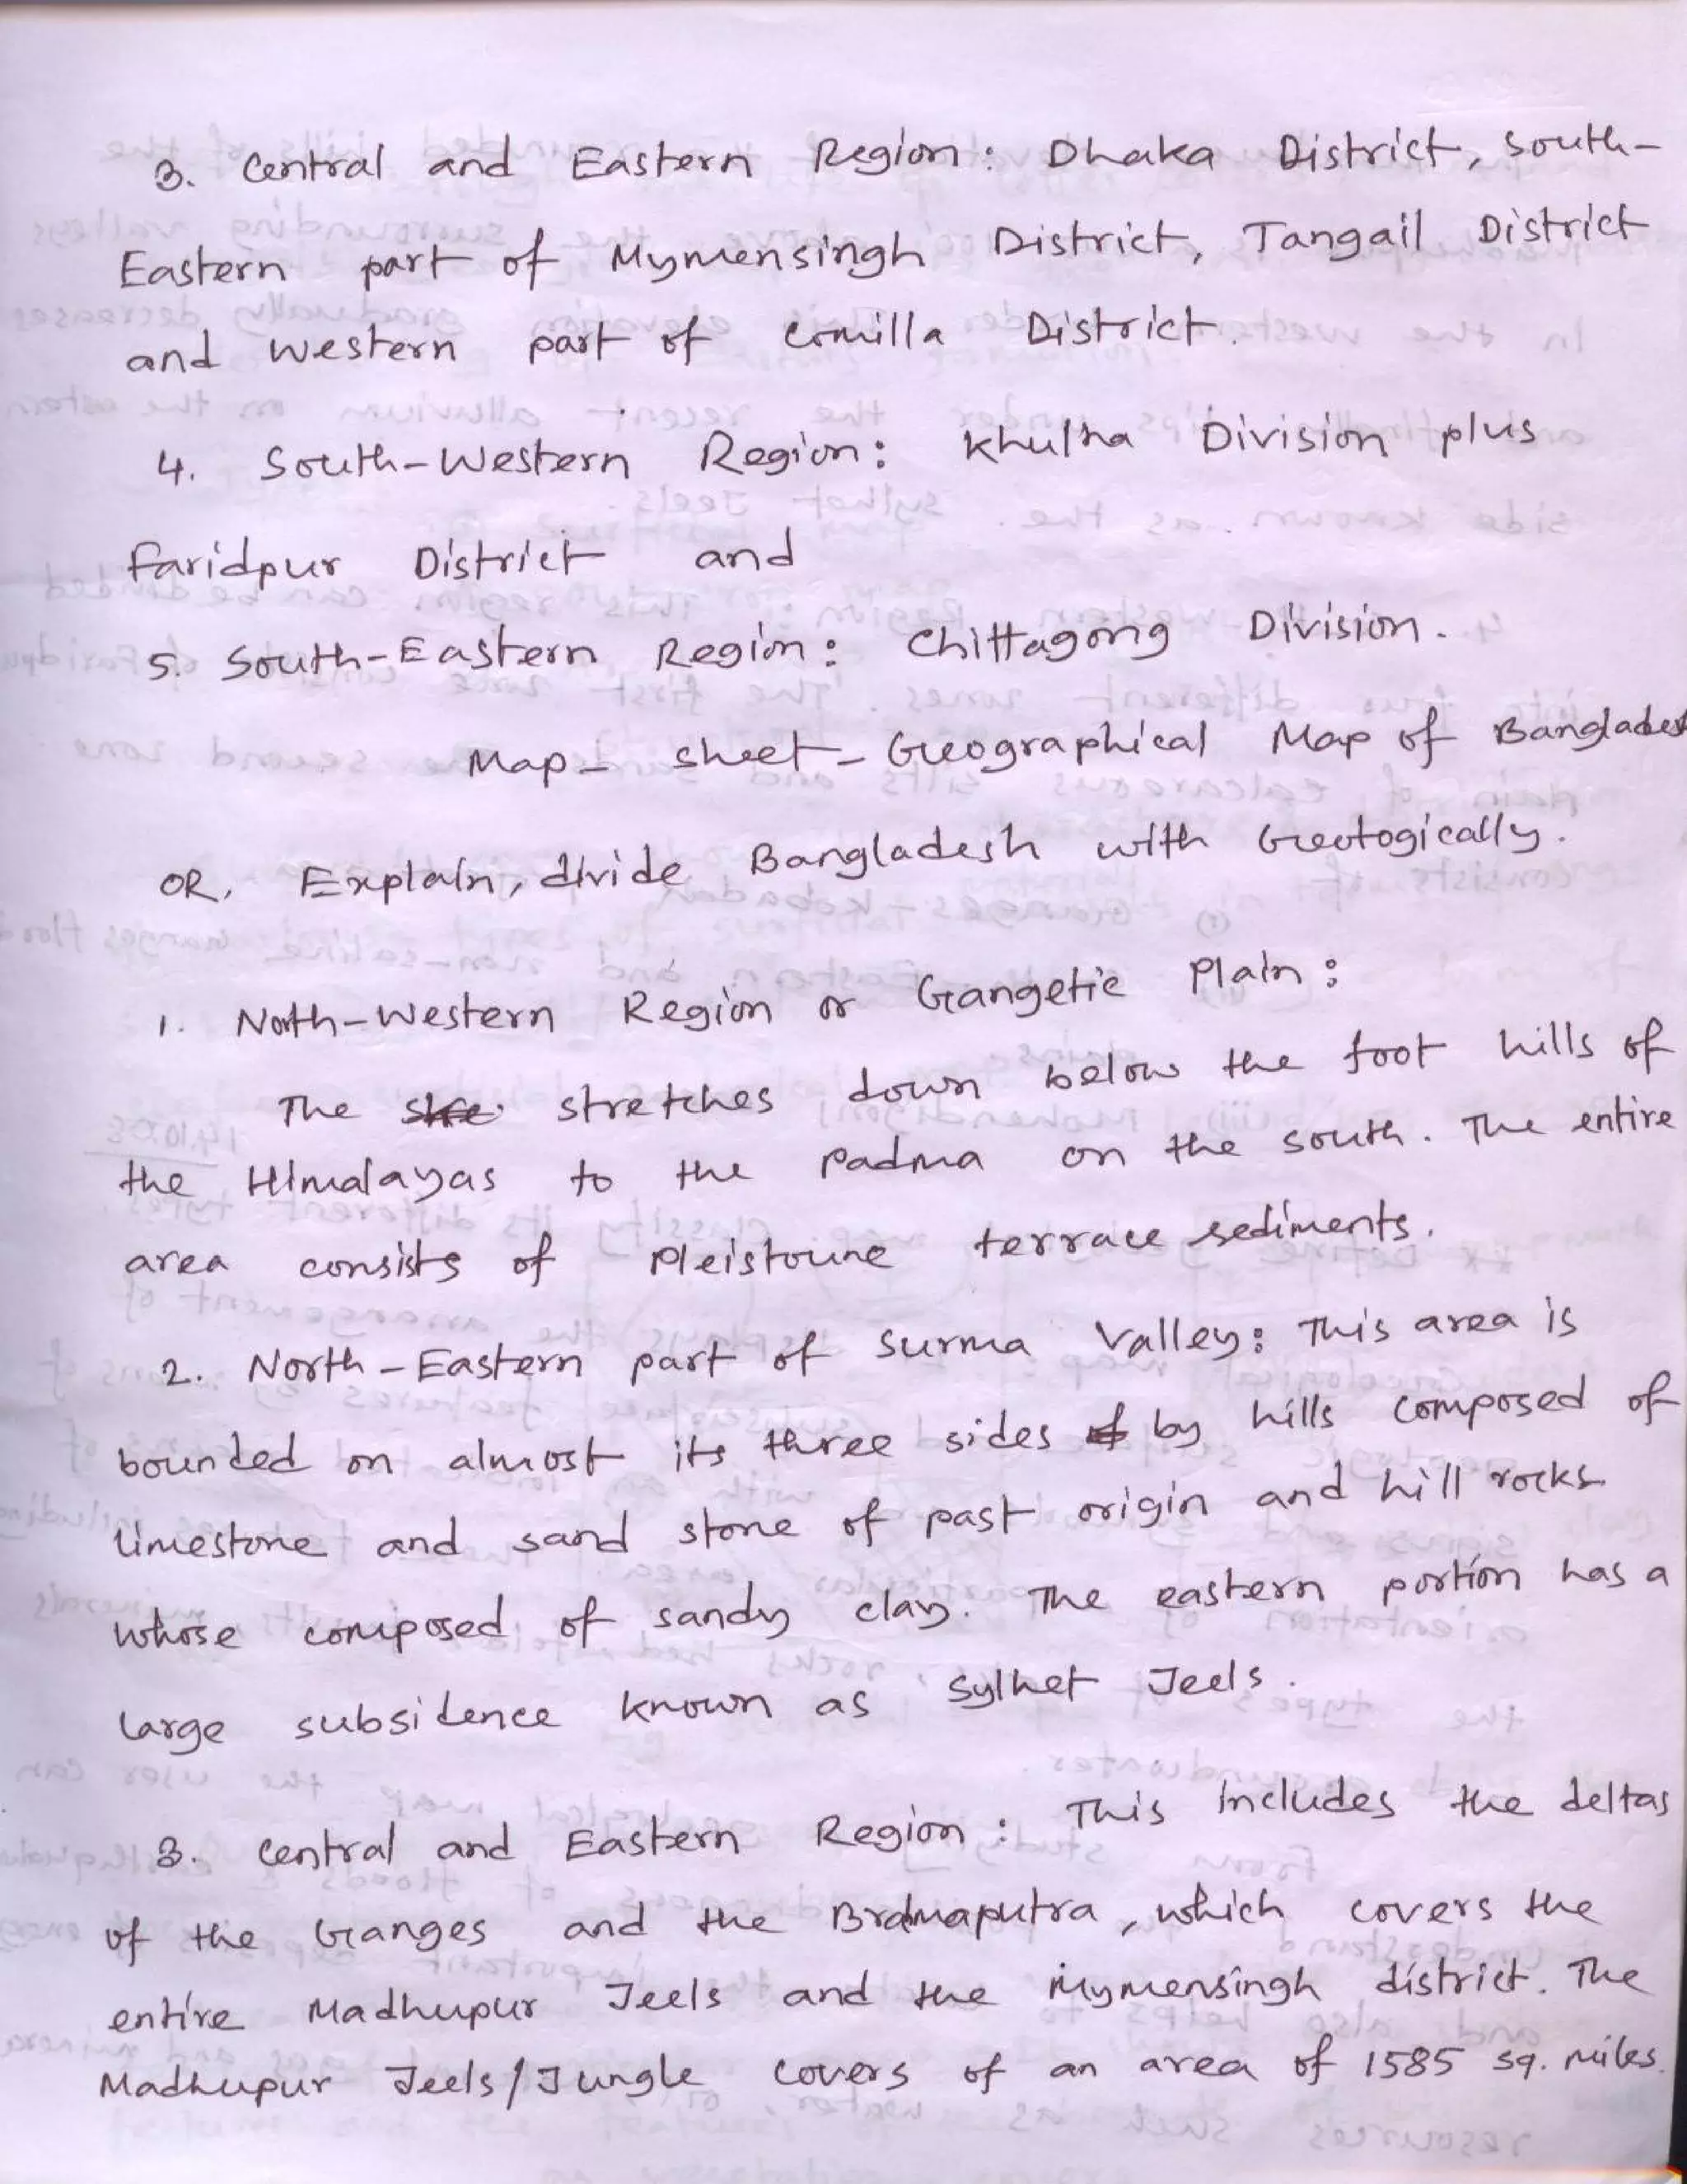 3. Central and Eastern Region: Dhaka District, South-
Eastern part of Mymensingh District, Tangail District
and Western part of Comilla District.
4. South-Western Region: Khulna Division plus
Faridpur District and
5. South-Eastern Region: Chittagong Division.
Map- sheet- Geographical Map of Banglades
OR, Explain, divide Bangladesh with Geologically.
1. North-Western Region or Gangetic Plain:
The stretches down below the foot hills of
the Himalayas to the Padma on the south. The entire
area consists of Pleistocene terrace sediments.
2. North-Eastern part of Surma Valley: This area is
bounded on almost its three sides by hills composed of
limestone and sand stone of past origin and hill rocks
whose composed of sandy clay. The eastern portion has a
large subsidence known as Sylhet Jeels.
3. Central and Eastern Region: This includes the deltas
of the Ganges and the Brahmaputra, which covers the
entire Madhupur Jeels and the Mymensingh district. The
Madhupur Jeels/Jungle covers of an area of 1585 sq. miles.